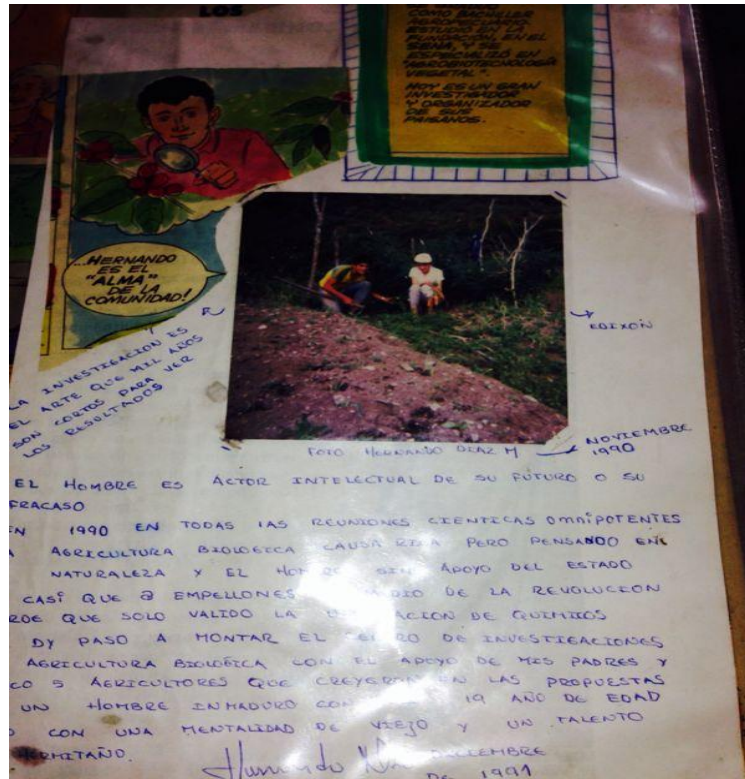 LOS
COMO BACHILLER
AGROPECUARIO
ESTUDIO EN LA
FUNDACIÓN, EN EL
SENA, Y SE
ESPECIALIZÓ EN
"AGROBIOTECNOLOGÍA
VEGETAL".
HOY ES UN GRAN
INVESTIGADOR
Y ORGANIZADOR
DE SUS
PAISANOS.
...HERNANDO
ES EL
"ALMA"
DE LA
COMUNIDAD!
EDIXON
LA INVESTIGACION ES
EL ARTE QUE MIL AÑOS
SON CORTOS PARA VER
LOS RESULTADOS
FOTO HERNANDO DIAZ M
NOVIEMBRE
1990
EL HOMBRE ES ACTOR INTELECTUAL DE SU FUTURO O SU
FRACASO
EN 1990 EN TODAS LAS REUNIONES CIENTICAS OMNIPOTENTES
AGRICULTURA BIOLOGICA CAUSA RISA PERO PENSANDO EN
NATURALEZA Y EL SIN APOYO DEL ESTADO
CASI QUE a EMPELLONES DE LA REVOLUCION
QUE SOLO VALIDO LA DE QUIMICOS
DY PASO A MONTAR EL DE INVESTIGACIONES
AGRICULTURA BIOLOGICA CON EL APOYO DE MIS PADRES Y
5 AGRICULTORES QUE CREYERON EN LAS PROPUESTAS
UN HOMBRE INMADURO CON 19 AÑO DE EDAD
CON UNA MENTALIDAD DE VIEJO Y UN TALENTO
ERMITAÑO.
Hernando DICIEMBRE
DE 1991